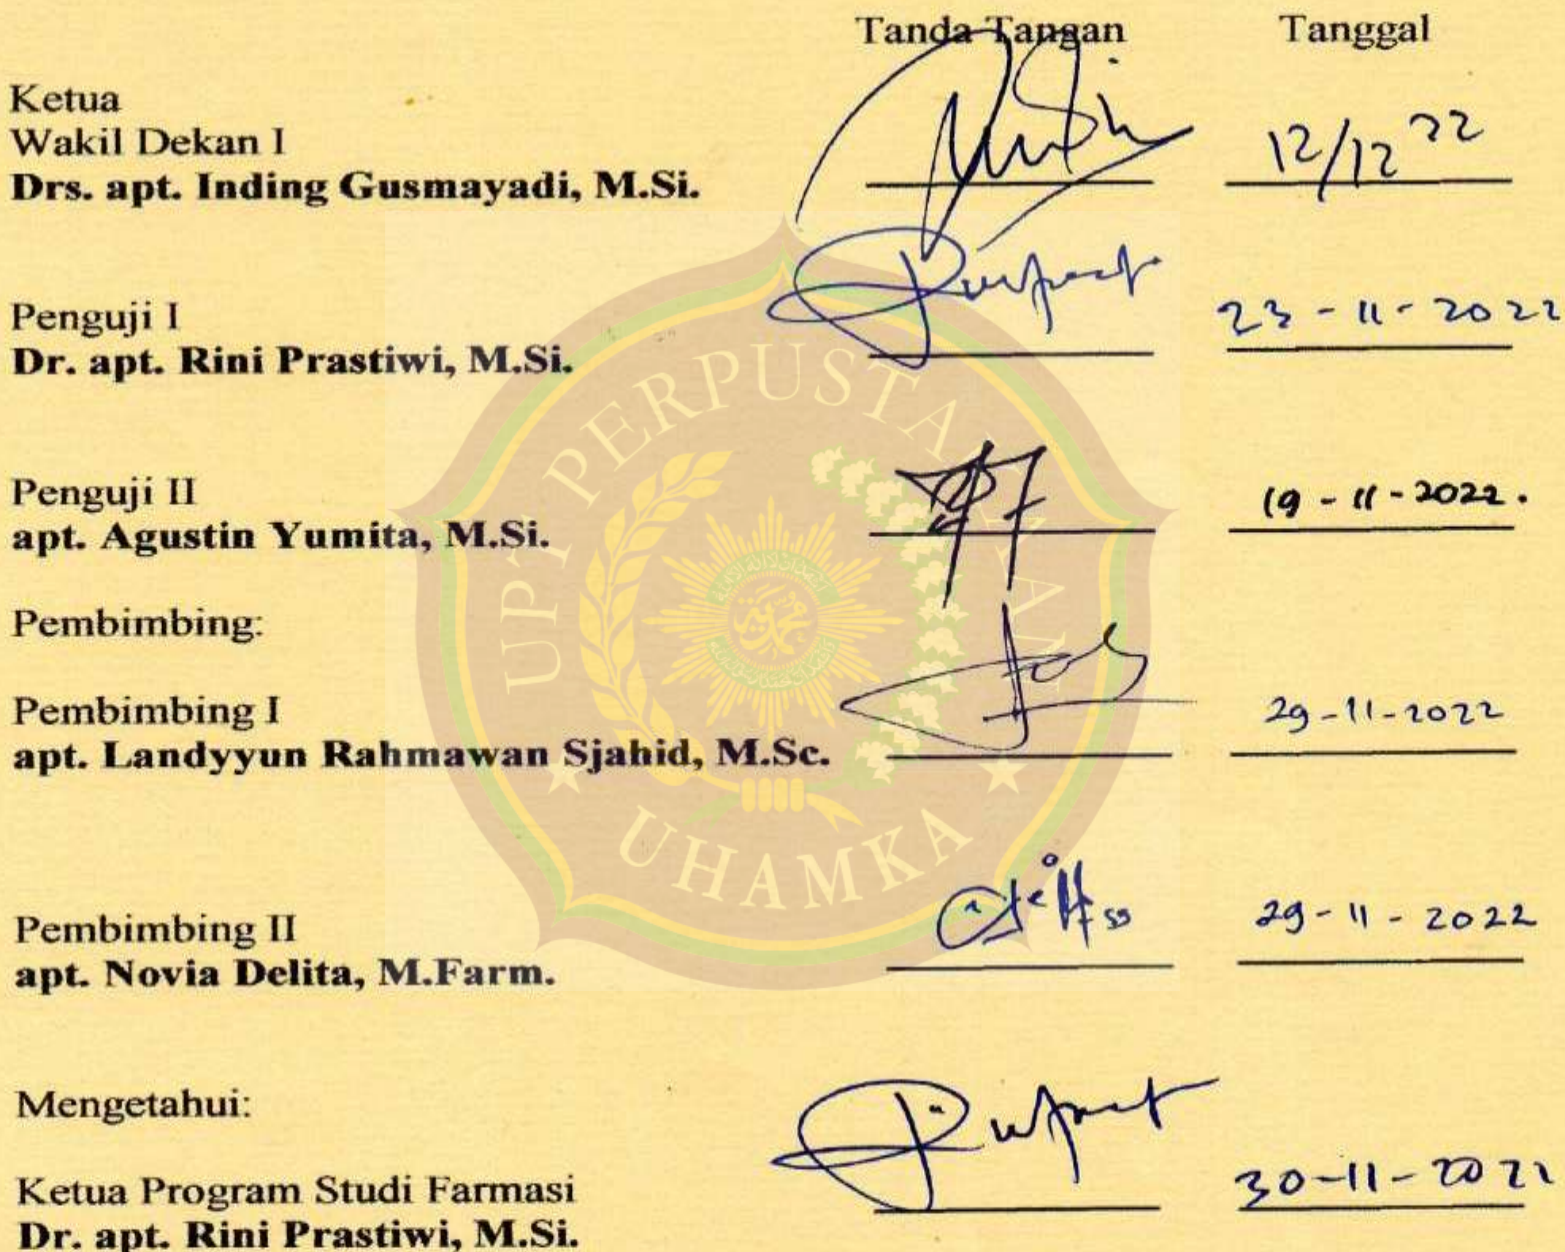 Tanda Tangan Tanggal
Ketua
Wakil Dekan I
Drs. apt. Inding Gusmayadi, M.Si. 12/12 22
Penguji I
Dr. apt. Rini Prastiwi, M.Si. 23 - 11 - 2022
Penguji II
apt. Agustin Yumita, M.Si. 19 - 11 - 2022.
Pembimbing:
Pembimbing I
apt. Landyyun Rahmawan Sjahid, M.Sc. 29-11-2022
Pembimbing II
apt. Novia Delita, M.Farm. 29-11-2022
Mengetahui:
Ketua Program Studi Farmasi
Dr. apt. Rini Prastiwi, M.Si. 30-11-2022
UPT PERPUSTAKAAN
UHAMKA